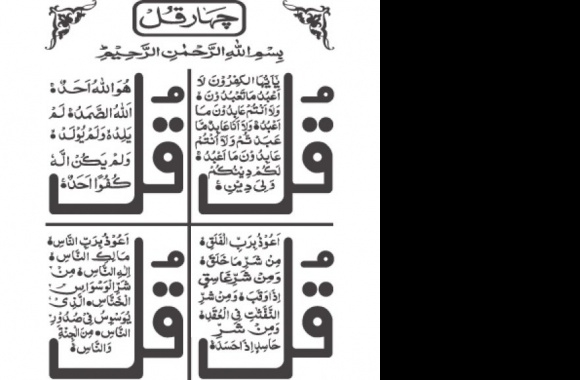 چہار قل
بِسْمِ اللهِ الرَّحْمٰنِ الرَّحِيْمِ
قُلْ
يٰٓاَيُّهَا الْكٰفِرُوْنَ لَا
اَعْبُدُ مَا تَعْبُدُوْنَ
وَلَا اَنْتُمْ عٰبِدُوْنَ مَا
اَعْبُدُ وَلَا اَنَا عَابِدٌ مَّا
عَبَدْتُّمْ وَلَا اَنْتُمْ
عٰبِدُوْنَ مَا اَعْبُدُ
لَكُمْ دِيْنُكُمْ
وَلِيَ دِيْنِ
قُلْ
هُوَ اللهُ اَحَدٌ
اَللهُ الصَّمَدُ لَمْ
يَلِدْ وَلَمْ يُوْلَدْ
وَلَمْ يَكُنْ لَّهٗ
كُفُوًا اَحَدٌ
قُلْ
اَعُوْذُ بِرَبِّ الْفَلَقِ
مِنْ شَرِّ مَا خَلَقَ
وَمِنْ شَرِّ غَاسِقٍ
اِذَا وَقَبَ وَمِنْ شَرِّ
النَّفّٰثٰتِ فِي الْعُقَدِ
وَمِنْ شَرِّ
حَاسِدٍ اِذَا حَسَدَ
قُلْ
اَعُوْذُ بِرَبِّ النَّاسِ
مَلِكِ النَّاسِ
اِلٰهِ النَّاسِ مِنْ
شَرِّ الْوَسْوَاسِ
الْخَنَّاسِ الَّذِيْ
يُوَسْوِسُ فِيْ صُدُوْرِ
النَّاسِ مِنَ الْجِنَّةِ
وَالنَّاسِ